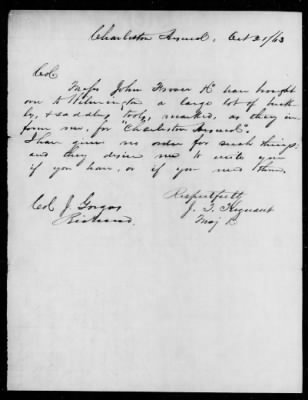 Charleston Arsenal, Oct 21/63
Col.
Mess John Fraser & Co have brought
on to Wilmington a large lot of
& saddlers tools, marked, as they in
form me, for "Charleston Arsenal".
I have given no order for such things
and they desire me to write you
if you have, or if you need them.
Respectfully
J. T. Trezevant
Maj
Col J. Gorgas
Richmond.